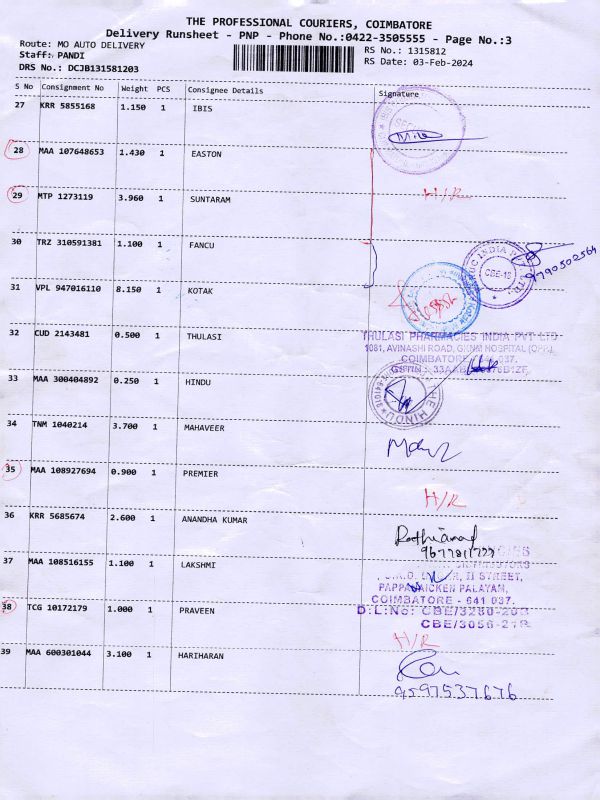 THE PROFESSIONAL COURIERS, COIMBATORE
Delivery Runsheet - PNP - Phone No.:0422-3505555 - Page No.:3
Route: MO AUTO DELIVERY RS No.: 1315812
Staff: PANDI RS Date: 03-Feb-2024
DRS No.: DCJB131581203
S No Consignment No Weight PCS Consignee Details Signature
27 KRR 5855168 1.150 1 IBIS
28 MAA 107648653 1.430 1 EASTON
29 MTP 1273119 3.960 1 SUNTARAM H/R
30 TRZ 310591381 1.100 1 FANCU
CBE-18
9790502564
31 VPL 947016110 8.150 1 KOTAK
32 CUD 2143481 0.500 1 THULASI
THULASI PHARMACIES INDIA PVT LTD
1081, AVINASHI ROAD, GKNM HOSPITAL (OPP),
COIMBATORE - 641 037.
33 MAA 300404892 0.250 1 HINDU
THE HINDU
34 TNM 1040214 3.700 1 MAHAVEER
35 MAA 108927694 0.900 1 PREMIER H/R
36 KRR 5685674 2.600 1 ANANDHA KUMAR
37 MAA 108516155 1.100 1 LAKSHMI
II STREET,
PAPPANAICKEN PALAYAM,
COIMBATORE - 641 037.
38 TCG 10172179 1.000 1 PRAVEEN
D.L.NS: CBE/3280-20B
CBE/3056-21B
H/R
39 MAA 600301044 3.100 1 HARIHARAN
9597537676